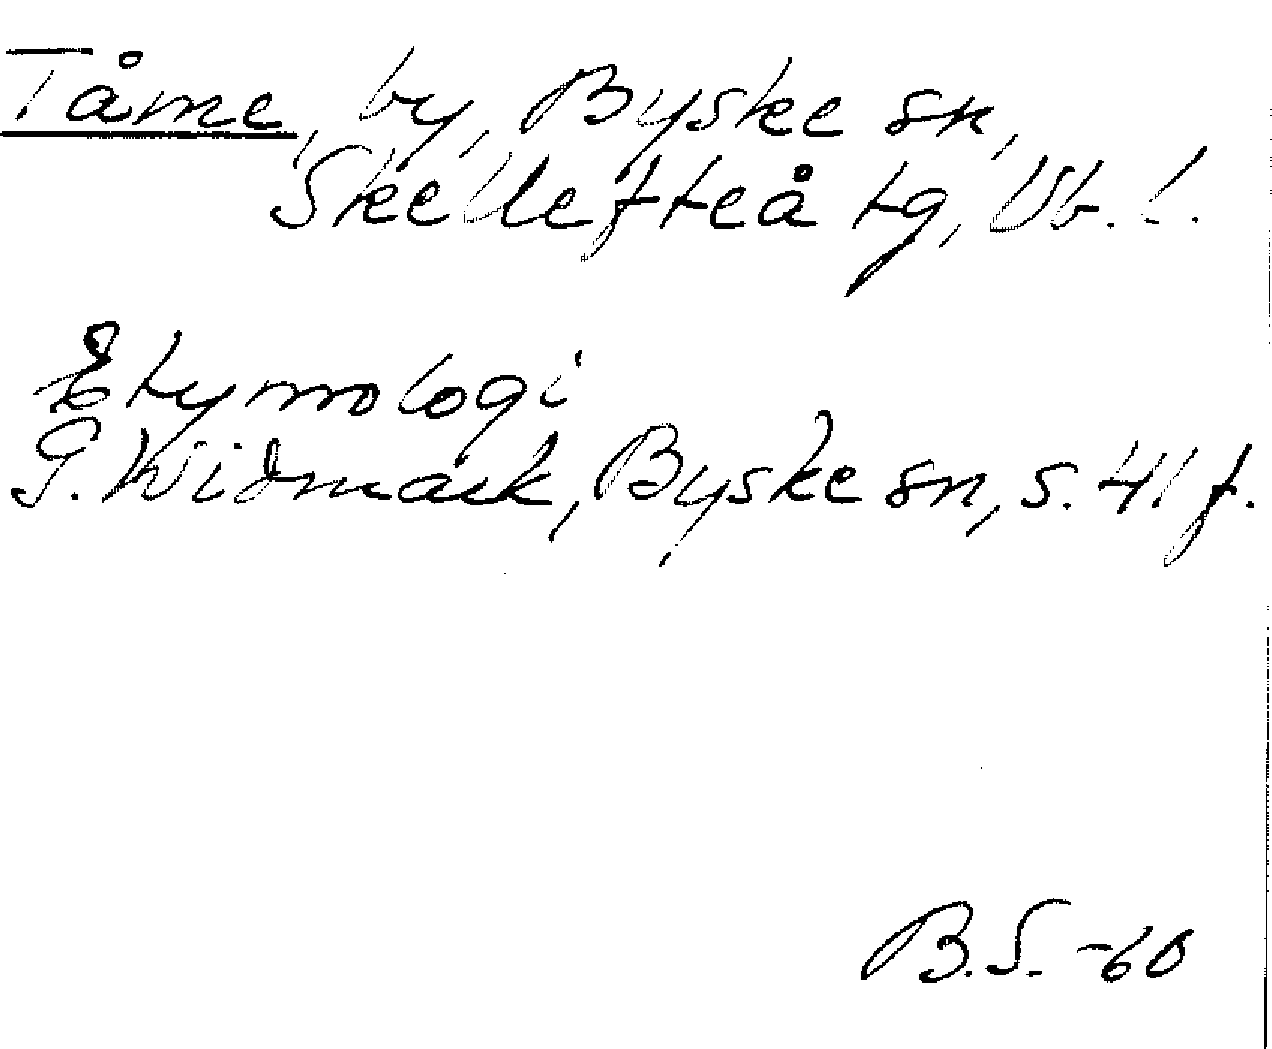 Tåme, by, Byske sn,
Skellefteå tg, Vb. l.
Etymologi
G. Widmark, Byske sn, s. 41 f.
B.S. -60